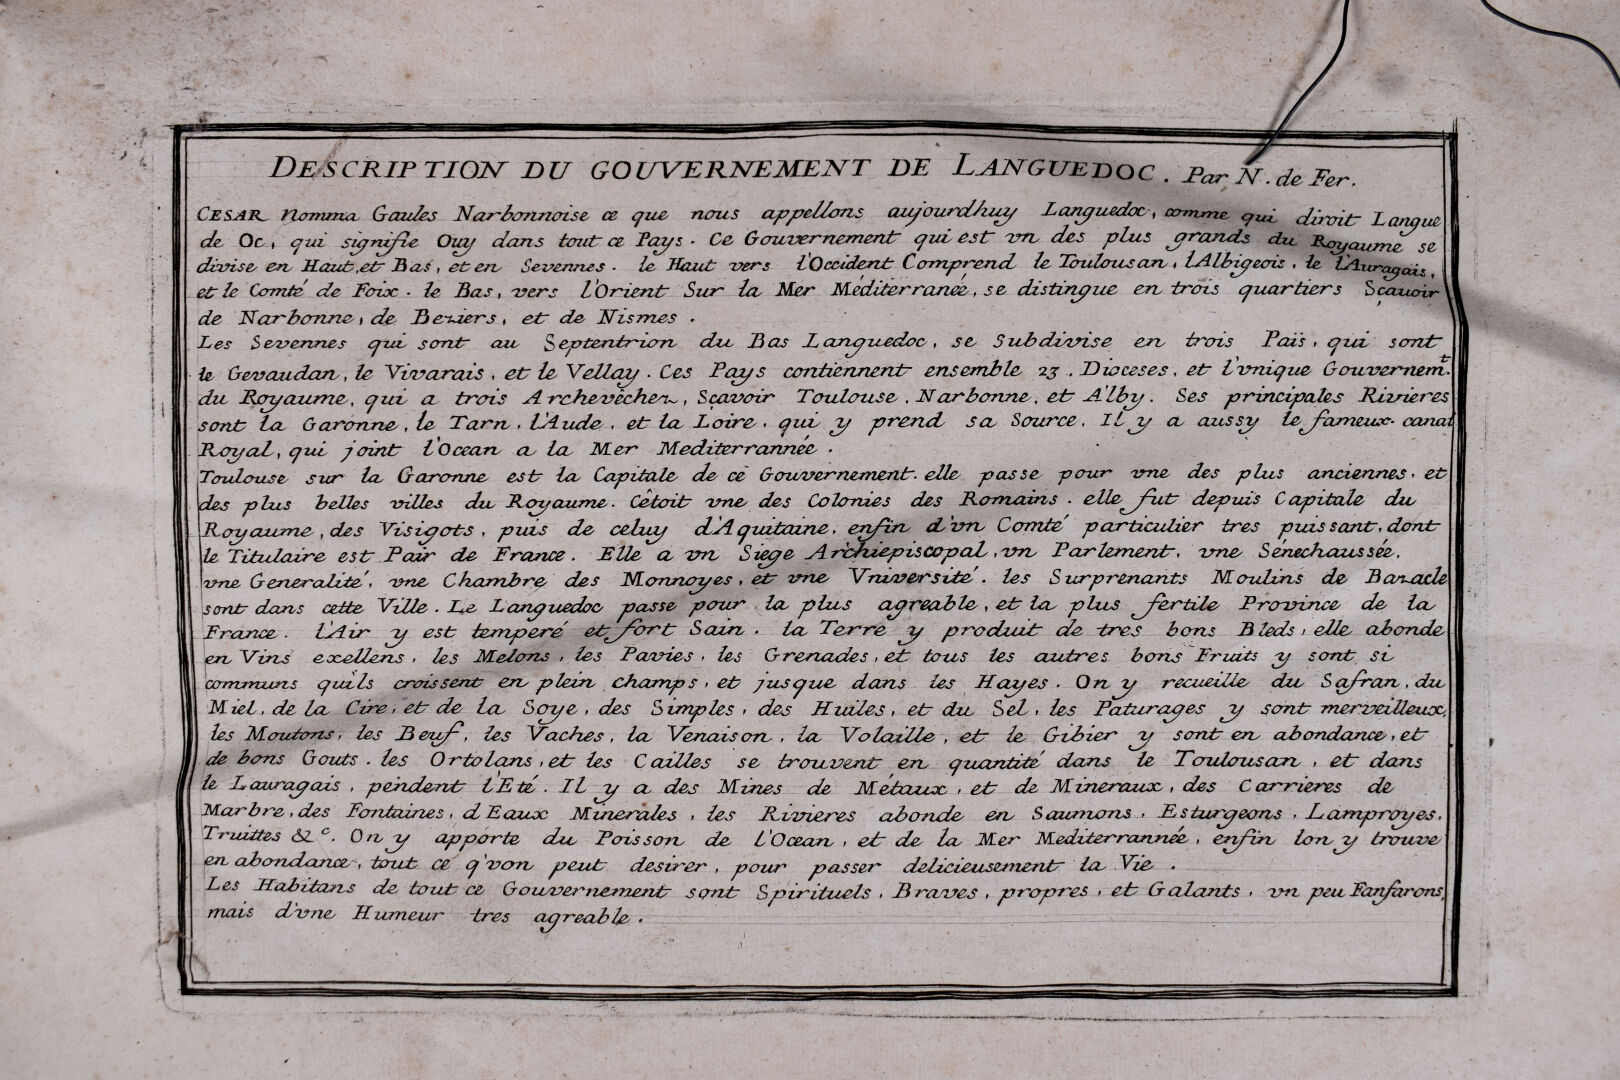 DESCRIPTION DU GOUVERNEMENT DE LANGUEDOC. Par N. de Fer.
CESAR Nomma Gaules Narbonnoise ce que nous appellons aujourdhuy Languedoc, comme qui diroit Langue
de Oc, qui signifie Ouy dans tout ce Pays. Ce Gouvernement qui est vn des plus grands du Royaume se
divise en Haut, et Bas, et en Sevennes. le Haut vers l'Occident Comprend le Toulousan, lAlbigeois, le l'Auragais,
et le Comté de Foix. le Bas, vers l'Orient Sur la Mer Méditerranée, se distingue en trois quartiers Sçavoir
de Narbonne, de Beziers, et de Nismes.
Les Sevennes qui sont au Septentrion du Bas Languedoc, se Subdivise en trois Païs, qui sont
le Gevaudan, le Vivarais, et le Vellay. Ces Pays contiennent ensemble 23. Dioceses, et l'vnique Gouvernem.t
du Royaume, qui a trois Archevêchez, Sçavoir Toulouse, Narbonne, et A'lby. Ses principales Rivieres
sont la Garonne, le Tarn, l'Aude, et la Loire, qui y prend sa Source. Il y a aussy le fameux canal
Royal, qui joint l'Ocean a la Mer Mediterrannée.
Toulouse sur la Garonne est la Capitale de ce Gouvernement. elle passe pour vne des plus anciennes, et
des plus belles villes du Royaume. Cêtoit vne des Colonies des Romains. elle fut depuis Capitale du
Royaume, des Visigots, puis de celuy d'Aquitaine, enfin d'vn Comté particulier tres puissant, dont
le Titulaire est Pair de France. Elle a vn Siege Archiepiscopal, vn Parlement, vne Sénechaussée,
vne Generalité, vne Chambre des Monnoyes, et vne Vniversité. les Surprenants Moulins de Bazacle
sont dans cette Ville. Le Languedoc passe pour la plus agreable, et la plus fertile Province de la
France. l'Air y est temperé et fort Sain. la Terre y produit de tres bons Bleds, elle abonde
en Vins exellens, les Melons, les Pavies, les Grenades, et tous les autres bons Fruits y sont si
communs quils croissent en plein champs, et jusque dans les Hayes. On y recueille du Safran, du
Miel, de la Cire, et de la Soye, des Simples, des Huiles, et du Sel, les Paturages y sont merveilleux,
les Moutons, les Beuf, les Vaches, la Venaison, la Volaille, et le Gibier y sont en abondance, et
de bons Gouts. les Ortolans, et les Cailles se trouvent en quantité dans le Toulousan, et dans
le Lauragais, pendent l'Eté. Il y a des Mines de Métaux, et de Mineraux, des Carrieres de
Marbre, des Fontaines, d'Eaux Minerales, les Rivieres abonde en Saumons, Esturgeons, Lamproyes,
Truittes &c. On y apporte du Poisson de l'Ocean, et de la Mer Mediterrannée, enfin lon y trouve
en abondance, tout ce q'von peut desirer, pour passer delicieusement la Vie.
Les Habitans de tout ce Gouvernement sont Spirituels, Braves, propres, et Galants, vn peu Fanfarons,
mais d'vne Humeur tres agreable.